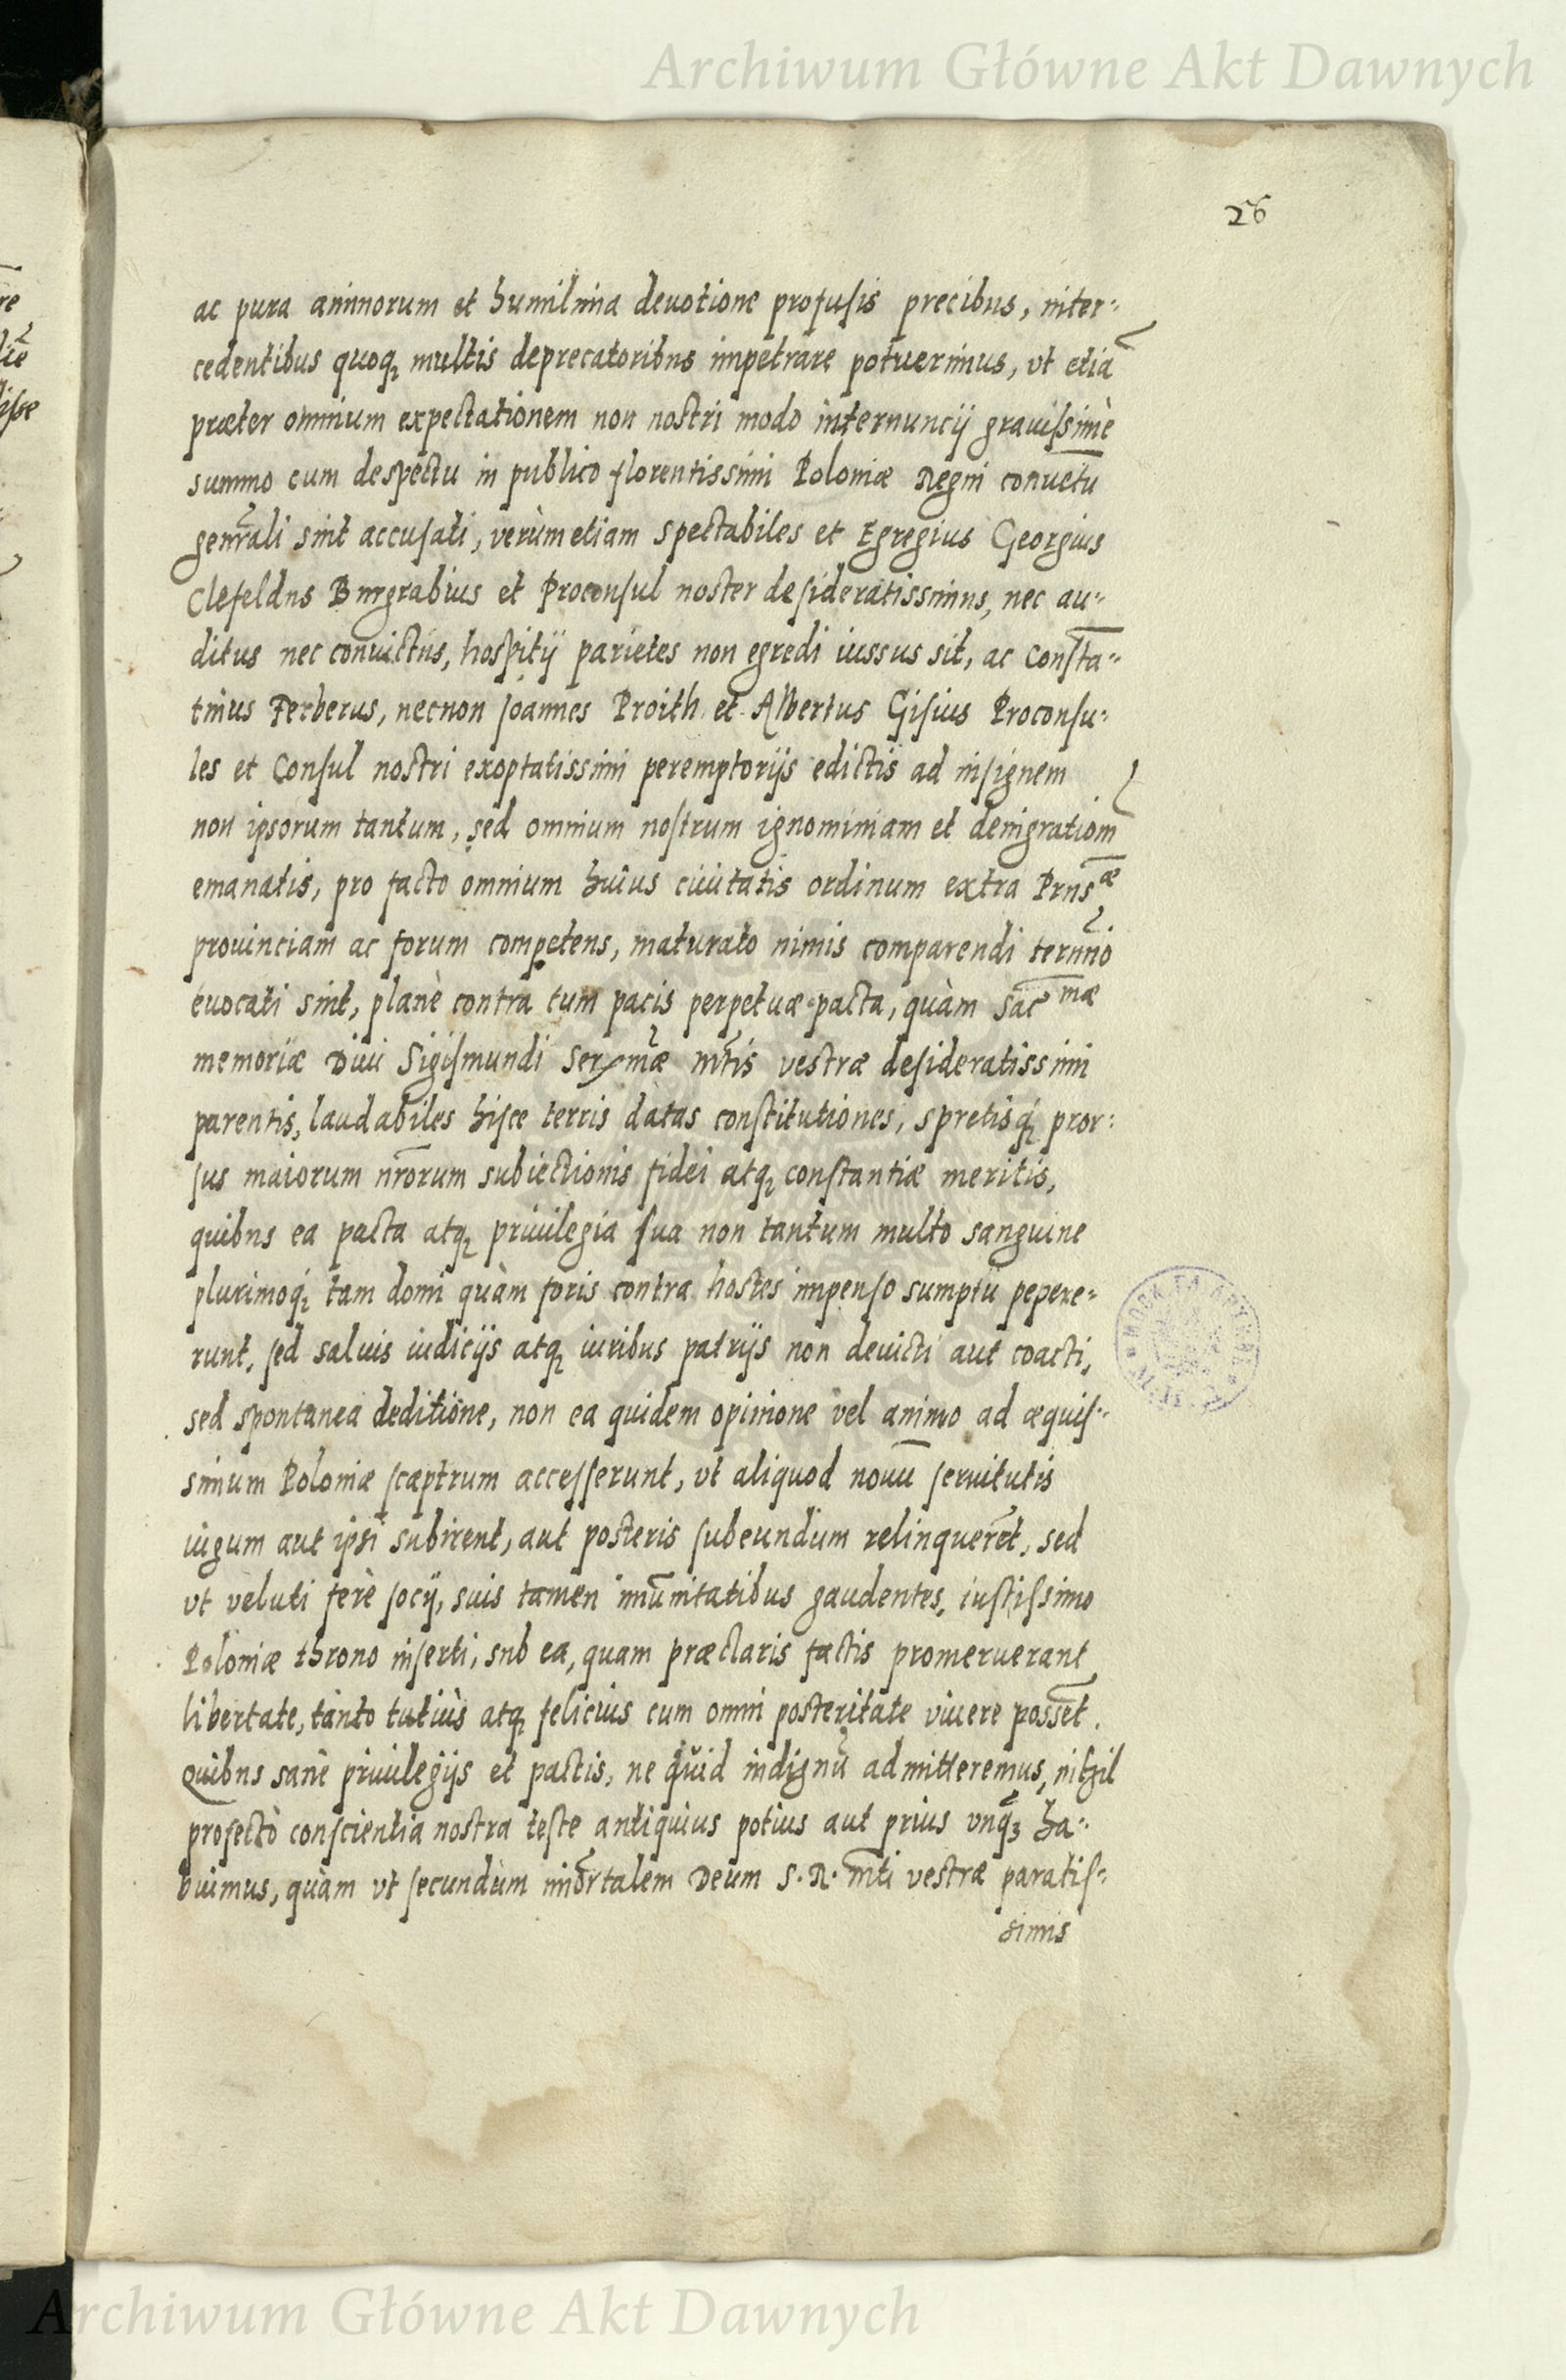 Archiwum Główne Akt Dawnych
26
ac pura animorum et humilima deuotione profusis precibus, inter-
cedentibus quoq; multis deprecatoribus impetrare potuerimus, vt etiā
præter omnium expectationem non nostri modo internuncij grauissimè
summo cum despectu in publico florentissimi Poloniæ Regni conuētu
genr̄ali sint accusati, verùm etiam Spectabiles et Egregius Georgius
Clefeldus Burgrabius et Proconsul noster desideratissimus, nec au-
ditus nec conuictus, hospitij parietes non egredi iussus sit, ac Consta-
tinus Ferberus, necnon Joannes Proith et Albertus Gisius Proconsu-
les et Consul nostri exoptatissimi peremptorijs edictis ad insignem
non ipsorum tantum, sed omnium nostrum ignominiam et denigratiom̄
emanatis, pro facto omnium huius ciuitatis ordinum extra Prns̄æ
prouinciam ac forum competens, maturato nimis comparendi termīo
euocati sint, planè contra tum pacis perpetuæ pacta, quàm Sac̄mæ
memoriæ Diui Sigismundi Serm̄æ mt̄is vestræ desideratissimi
parentis, laudabiles hisce terris datas constitutiones, spretisq; pror-
sus maiorum nr̄orum subiectionis fidei atq; constantiæ meritis,
quibus ea pacta atq; priuilegia sua non tantum multo sanguine
plurimoq; tam domi quàm foris contra hostes impenso sumptu pepere-
runt, sed saluis iudicijs atq; iuribus patrijs non deuicti aut coacti,
sed spontanea deditione, non ea quidem opinione vel animo ad æquis-
simum Poloniæ scæptrum accesserunt, vt aliquod nouū seruitutis
iugum aut ipsi subirent, aut posteris subeundum relinquerēt, sed
vt veluti ferè socij, suis tamen imūnitatibus gaudentes, iustissimo
Poloniæ throno inserti, sub ea, quam præclaris factis promeruerant
libertate, tanto tutiùs atq; felicius cum omni posteritate viuere possēt.
Quibus sanè priuilegijs et pactis, ne quid indignū admitteremus, nihil
profectò conscientia nostra teste antiquius potius aut prius vnq̄ȝ ha-
buimus, quàm vt secundùm imōrtalem Deum S. R. mt̄i vestræ paratis-
simis
Archiwum Główne Akt Dawnych